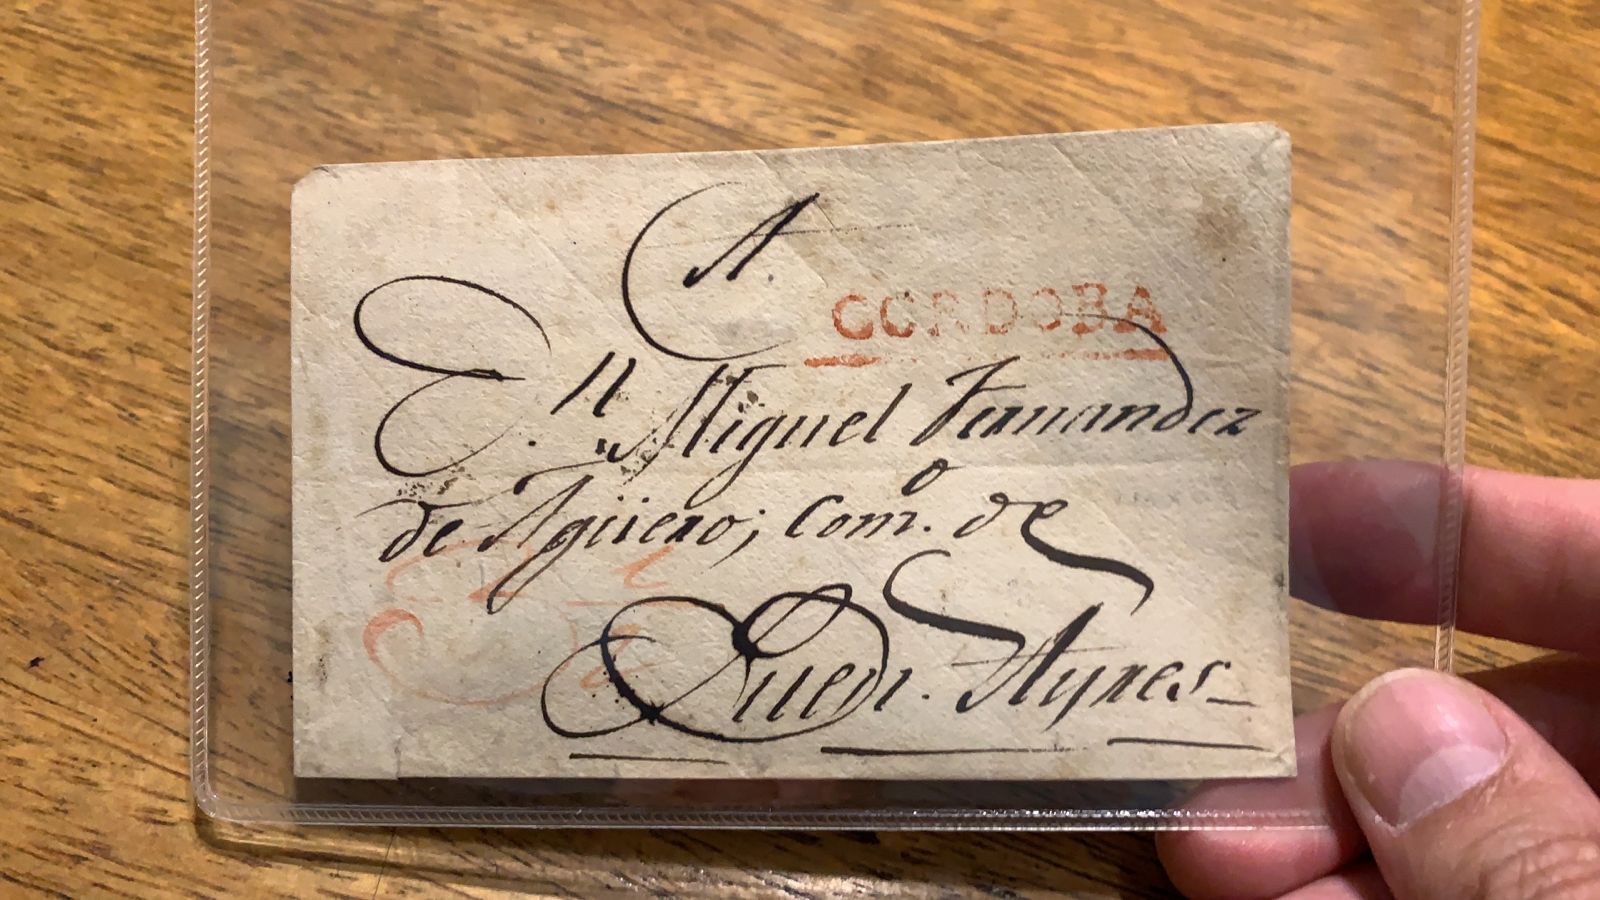 A
CORDOBA
D.n Miguel Fernandez
de Agüero; Com.o de
Buen.s Ayres